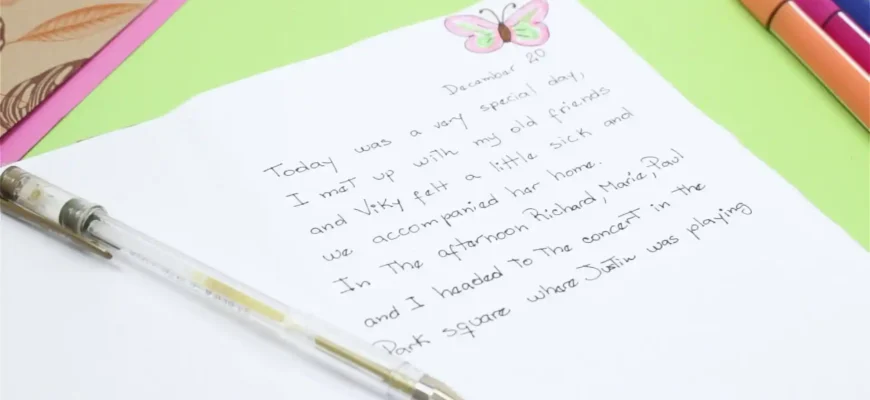 December 20
Today was a very special day,
I met up with my old friends
and Viky felt a little sick and
we accompanied her home.
In the afternoon Richard, Marie, Paul
and I headed to the concert in the
Park square where Justin was playing